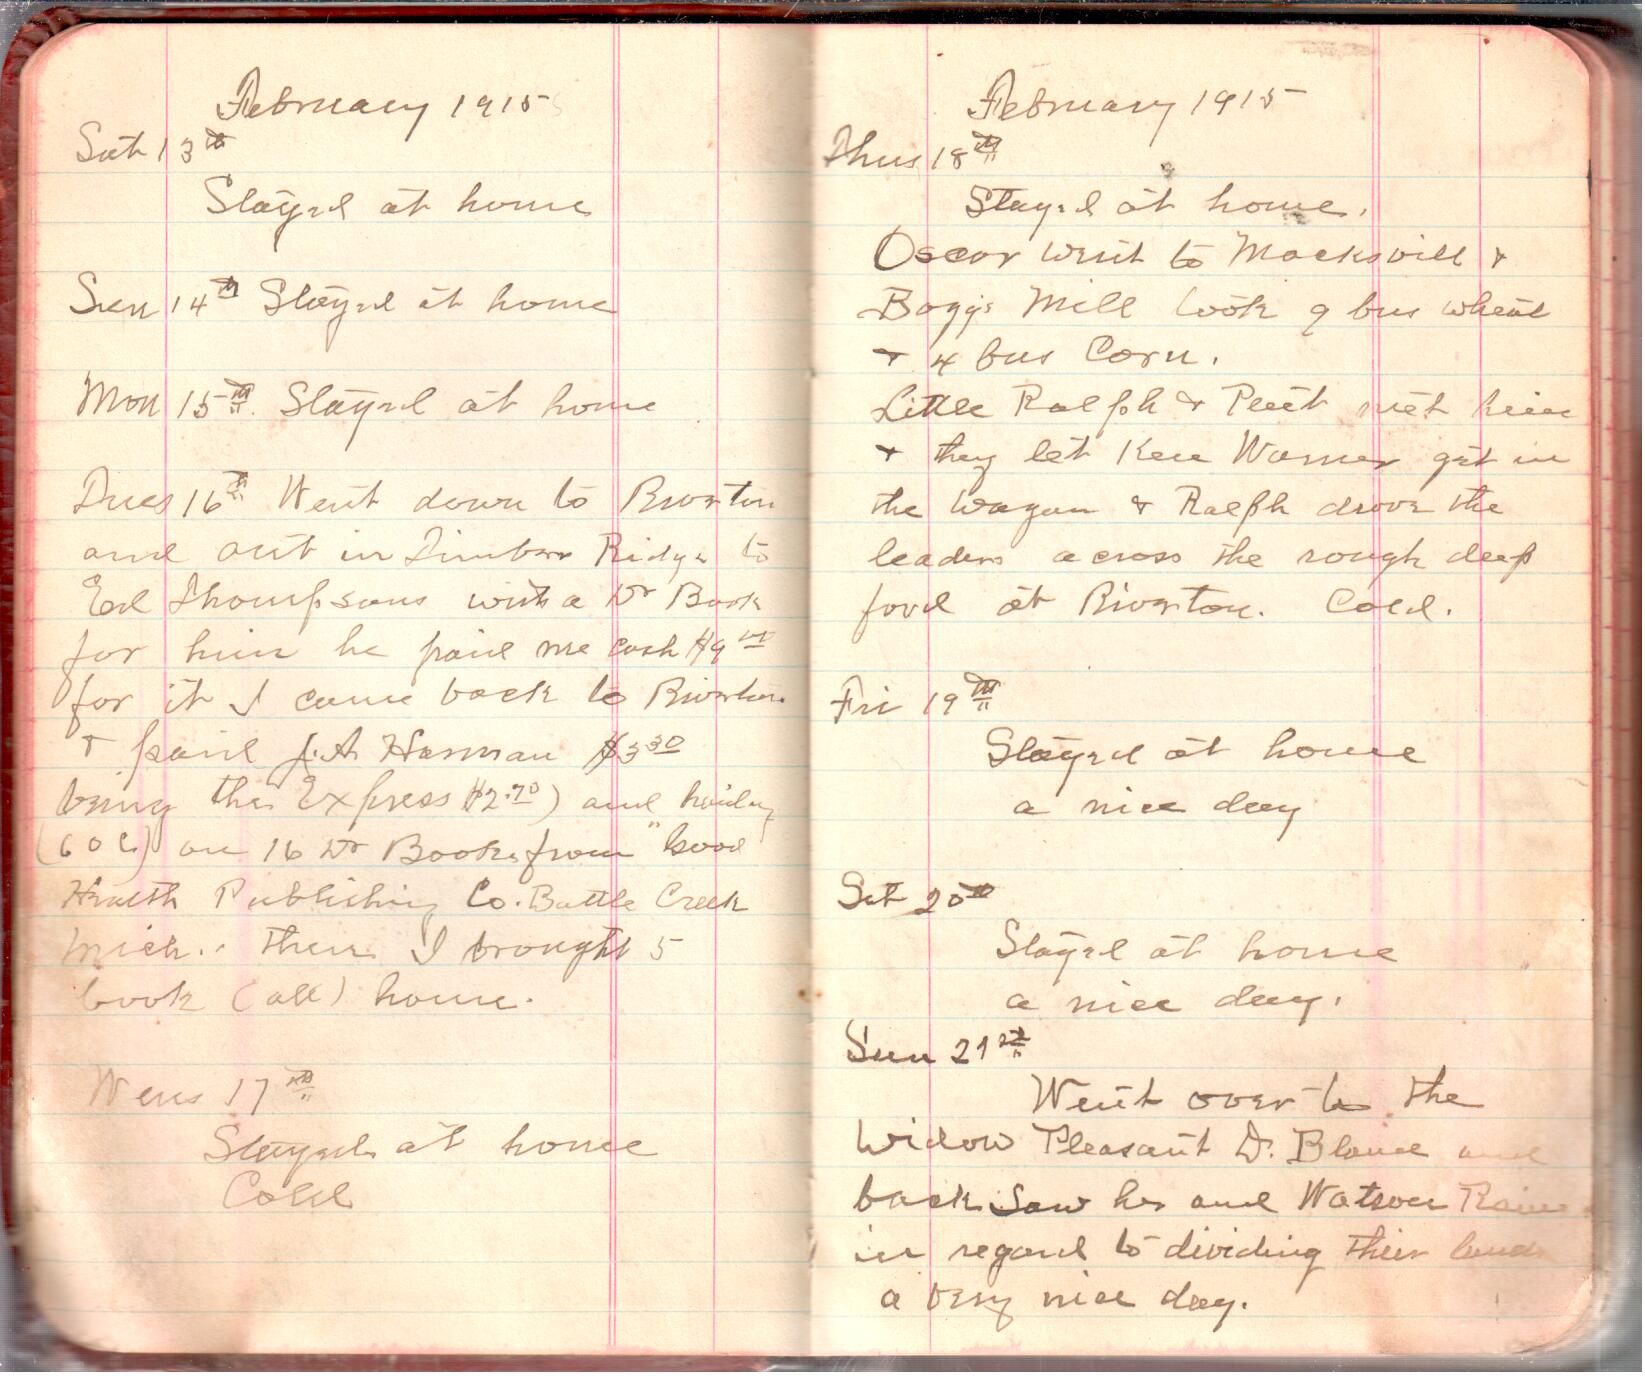 February 1915
Sat 13th
Stayed at home
Sun 14th Stayed at home
Mon 15th. Stayed at home
Tues 16th Went down to Riverton
and out in Timber Ridge to
Ed Thompsons with a Dr Book
for him he paid me cash $9 00
for it I came back to Riverton
& paid J. A. Harman $3 30
being the Express $2.70) and hauling
(60c) on 16 Dr Books from "Good
Health Publishing Co. Battle Creek
Mich. then I brought 5
book (all) home.
Wens 17th
Stayed at home
Cold
February 1915
Thus 18th
Stayed at home.
Oscar went to Macksvill &
Boggs Mill took 9 bus wheat
& 4 bus Corn.
Little Ralph & met him
& they let Ken Warner get in
the Wagon & Ralph drove the
leaders across the rough deep
ford at Riverton. Cold.
Fri 19th
Stayed at home
a nice day
Sat 20th
Stayed at home
a nice day.
Sun 21st
Went over to the
Widow Pleasant D. Bland and
back Saw her and Watson
in regard to dividing their lands
a very nice day.